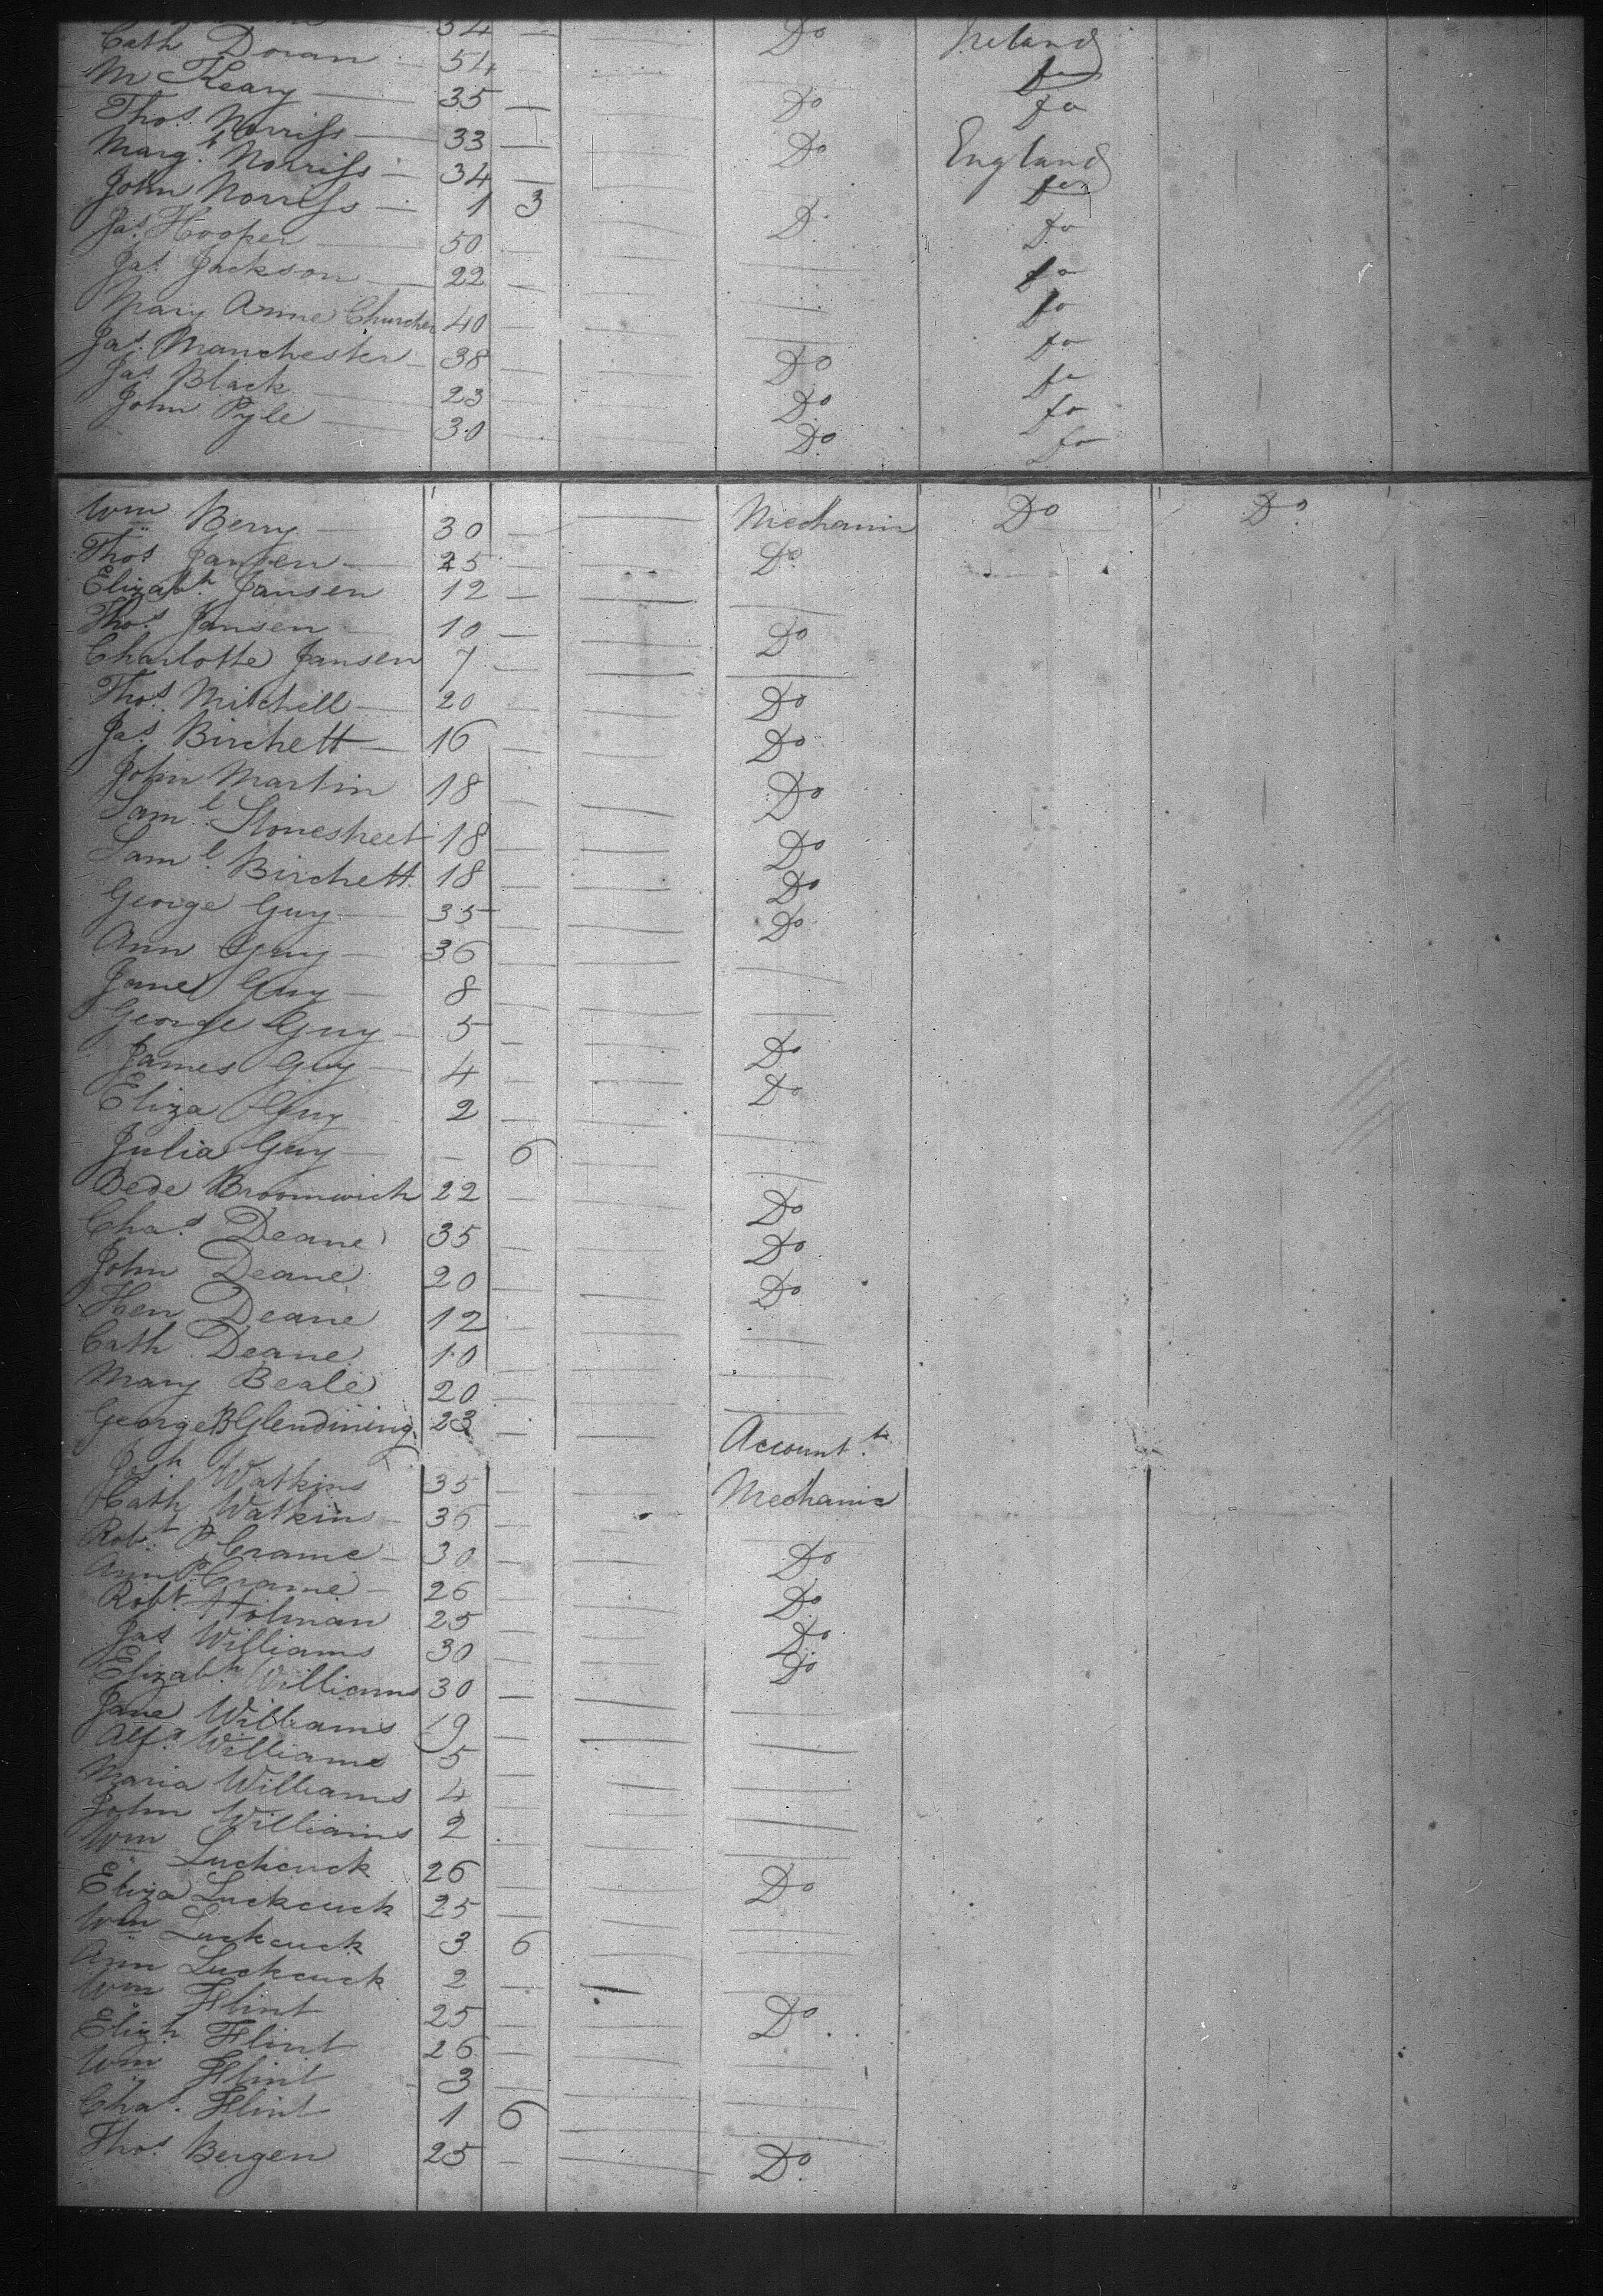 34 Do Ireland
Cath Doran 54 do
M Keary 35 Do do
Thos Norriss 33 Do England
Margt Norriss 34 do
John Norriss 1 3 D. Do
Jas Hooper 50 do
Jas Jackson 22 do
Mary Anne Churcher 40 do
Jas Manchester 38 Do do
Jas Black 23 Do do
John Pyle 30 Do do
Wm Berry 30 Mechanic Do Do
Thos Jansen 25 Do
Elizabh Jansen 12
Thos Jansen 10 Do
Charlotte Jansen 7
Thos Mitchell 20 Do
Jas Birchett 16 Do
John Martin 18 Do
Saml Stonestreet 18 Do
Saml Birchett 18 Do
George Guy 35 Do
Ann Guy 36
Jane Guy 8
George Guy 5 Do
James Guy 4 Do
Eliza Guy 2
Julia Guy — 6
Bede Broomwich 22 Do
Chas Deane 35 Do
John Deane 20 Do
Hen Deane 12
Cath Deane 10
Mary Beale 20
George B Glendining 23 Accountt
Josh Watkins 35 Mechanic
Cath Watkins 36
Robt P Crame 30 Do
Ann P Crame 26 Do
Robt Holman 25 Do
Jas Williams 30 Do
Elizabh Williams 30
Jane Williams 19
Alfd Williams 5
Maria Williams 4
John Williams 2
Wm Luckcuck 26 Do
Eliza Luckcuck 25
Wm Luckcuck 3 6
Ann Luckcuck 2
Wm Flint 25 Do
Elizh Flint 26
Wm Flint 3
Chas Flint 1 6
Thos Bergen 25 Do